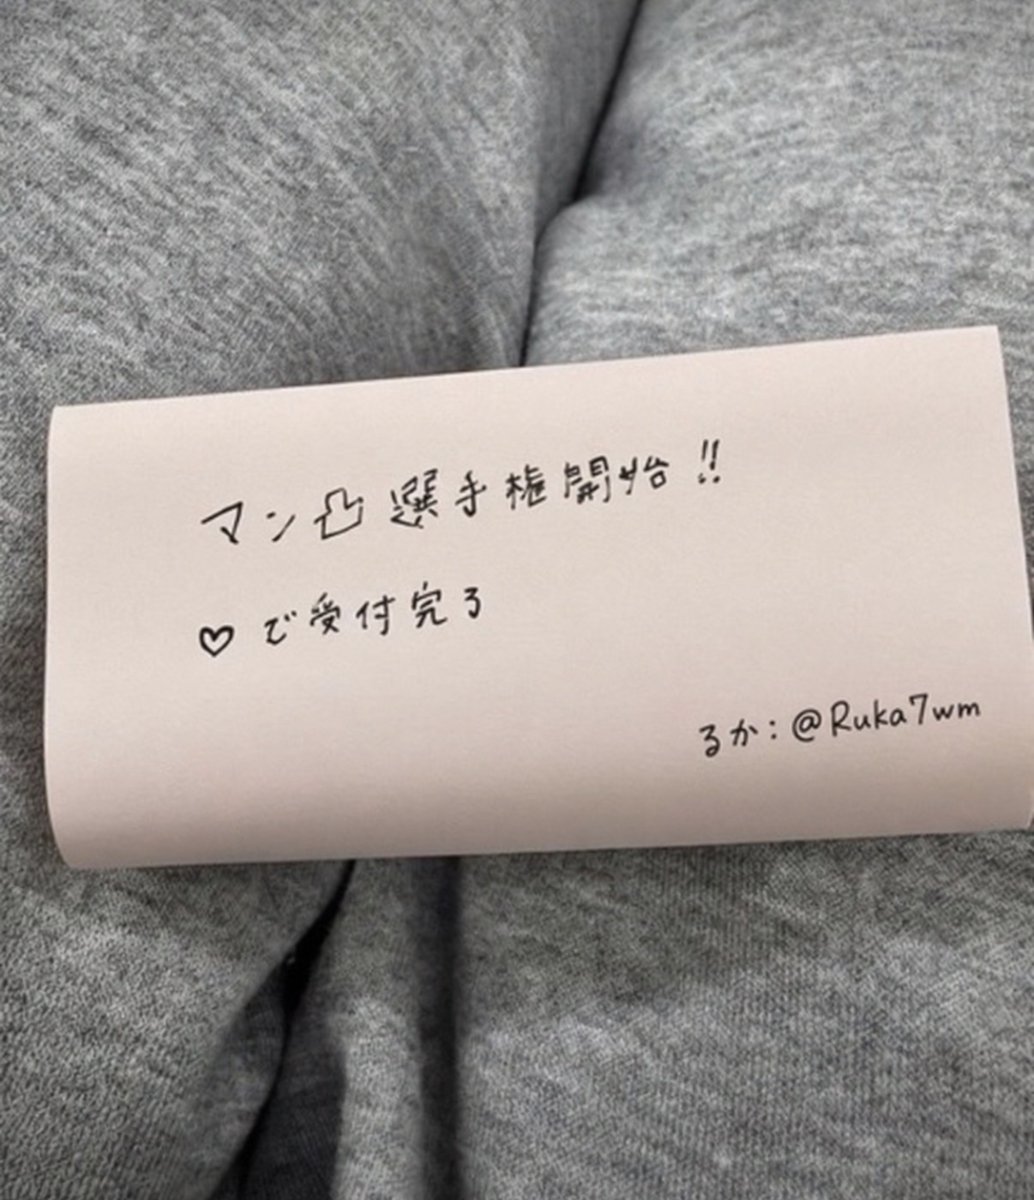 マン凸選手権開始!!
♡で受付完了
るか:@Ruka7wm